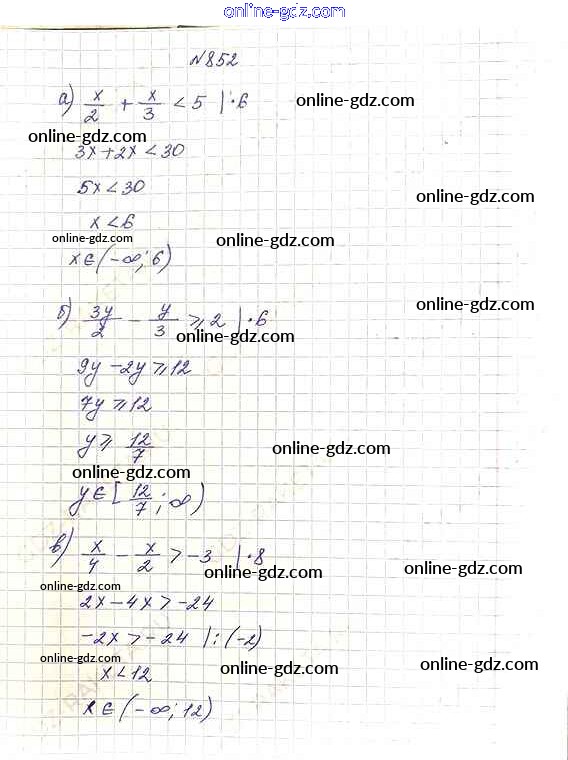 online-gdz.com
N852
а) x/2 + x/3 < 5 |·6 online-gdz.com
online-gdz.com
3x+2x<30
5x<30 online-gdz.com
x<6
online-gdz.com online-gdz.com
x∈(-∞;6)
online-gdz.com
б) 3y/2 - y/3 ⩾ 2 |·6
online-gdz.com
9y-2y⩾12
7y⩾12
y⩾ 12/7 online-gdz.com
online-gdz.com
y∈[12/7;∞)
в) x/4 - x/2 > -3 |·8
online-gdz.com online-gdz.com
online-gdz.com
2x-4x>-24
-2x>-24 |:(-2)
online-gdz.com online-gdz.com online-gdz.com
x<12
x∈(-∞;12)